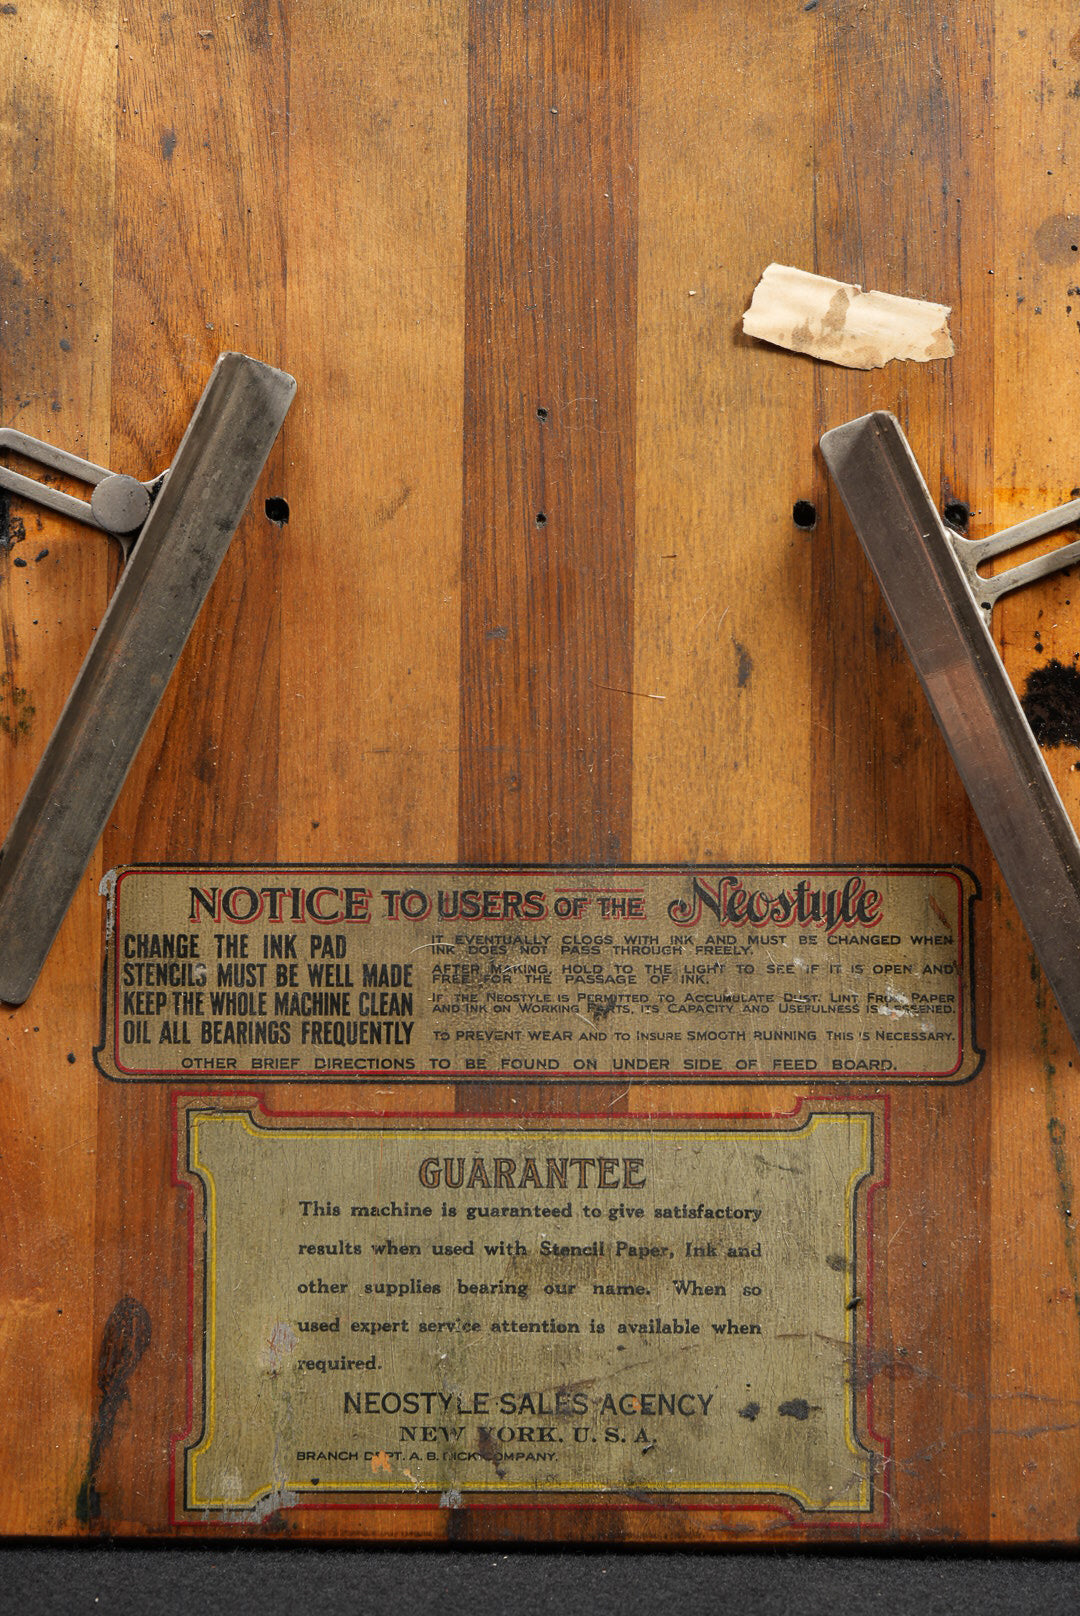 NOTICE TO USERS OF THE Neostyle
CHANGE THE INK PAD
IT EVENTUALLY CLOGS WITH INK AND MUST BE CHANGED WHEN
INK DOES NOT PASS THROUGH FREELY.
STENCILS MUST BE WELL MADE
AFTER MAKING, HOLD TO THE LIGHT TO SEE IF IT IS OPEN AND
FREE FOR THE PASSAGE OF INK.
KEEP THE WHOLE MACHINE CLEAN
IF THE NEOSTYLE IS PERMITTED TO ACCUMULATE DUST, LINT FROM PAPER
AND INK ON WORKING PARTS, ITS CAPACITY AND USEFULNESS IS LESSENED.
OIL ALL BEARINGS FREQUENTLY
TO PREVENT WEAR AND TO INSURE SMOOTH RUNNING THIS IS NECESSARY.
OTHER BRIEF DIRECTIONS TO BE FOUND ON UNDER SIDE OF FEED BOARD.
GUARANTEE
This machine is guaranteed to give satisfactory
results when used with Stencil Paper, Ink and
other supplies bearing our name. When so
used expert service attention is available when
required.
NEOSTYLE SALES AGENCY
NEW YORK. U. S. A.
BRANCH DEPT. A. B. DICK COMPANY.